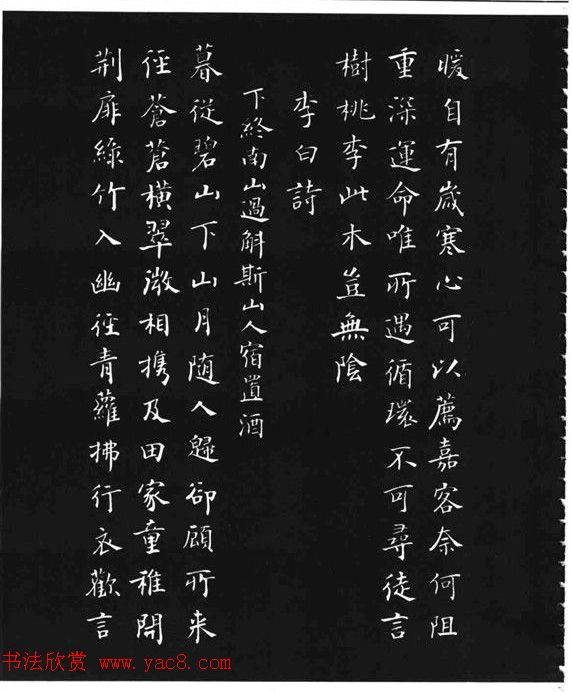 暖自有歲寒心可以薦嘉客奈何阻
重深運命唯所遇循環不可尋徒言
樹桃李此木豈無陰
李白詩
下終南山過斛斯山人宿置酒
暮從碧山下山月随人歸卻顧所来
徑蒼蒼橫翠微相攜及田家童稚開
荆扉綠竹入幽徑青蘿拂行衣歡言
书法欣赏 www.yac8.com